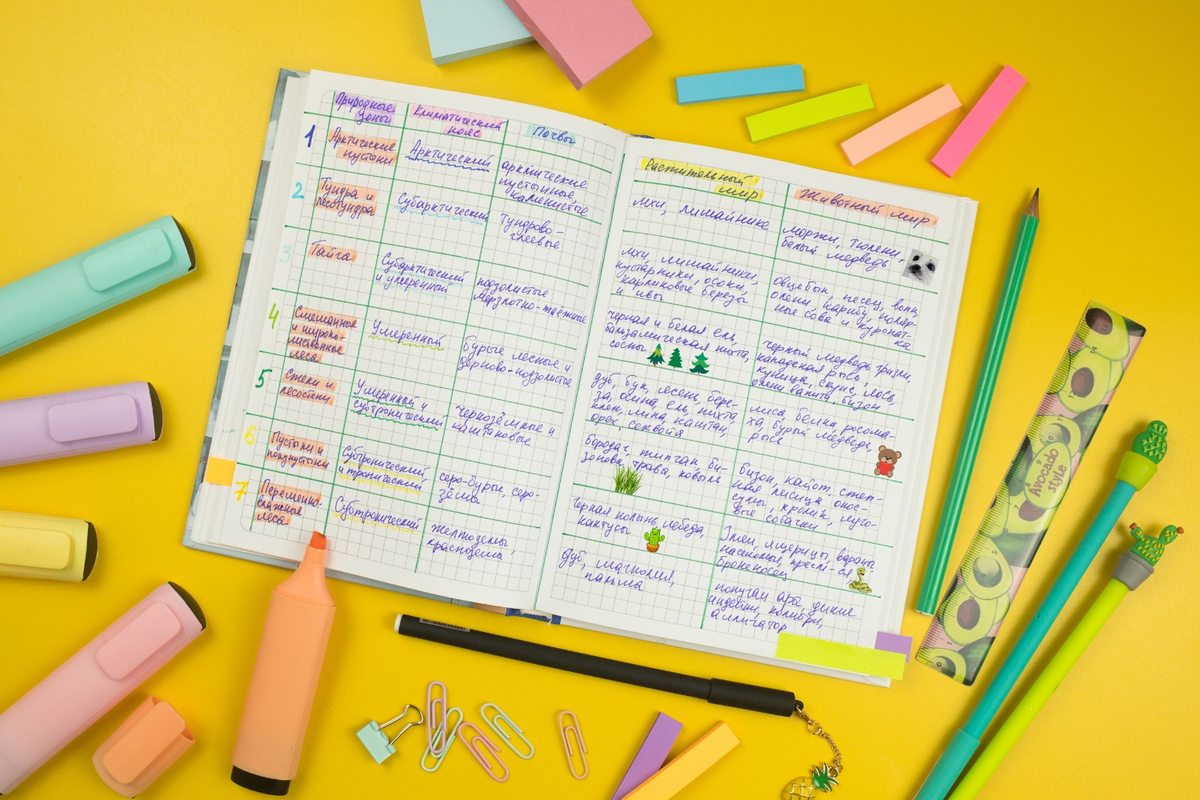 Природные
зоны
Климатический
пояс
Почвы
1
Арктические
пустыни
Арктический
арктические
пустынные,
каменистые
2
Тундра и
лесотундра
Субарктический
тундрово-
глеевые
3
Тайга
Субарктический
и умеренный
подзолистые
мерзлотно-таёжные
4
Смешанные
и широко-
лиственные
леса
Умеренный
бурые лесные и
дерново-подзолистые
5
Степи и
лесостепи
Умеренный и
субтропический
чернозёмные и
каштановые
6
Пустыни и
полупустыни
Субтропический
и тропический
серо-бурые, серо-
зёмы
7
Переменно-
влажные
леса
Субтропический
желтозёмы,
краснозёмы
Растительный
мир
Животный мир
мхи, лишайники
моржи, тюлени,
белый медведь
мхи, лишайники,
кустарники, осоки,
карликовые березы
и ивы
овцебык, песец, волк,
олени, карибу, поляр-
ные сова и куропат-
ка
черная и белая ель,
бальзамическая пихта,
сосны
черный медведь гризли,
канадская рысь,
куница, скунс, лось,
олень вапити, бизон
дуб, бук, ясень, бере-
за, ель, пихта
клен, липа, каштан,
орех, секвойя
лиса, белка, росома-
ха, бурый медведь,
рысь
бородач, типчак, би-
зонова трава, ковыль
бизон, койот, степ-
ная лисица,
кролик, луго-
вые собачки
черная полынь, лебеда,
кактусы
Змеи, ящерицы, вараны,
насекомые,
броненосец
дуб, магнолия,
пальма
попугаи ара, дикие
индейки, колибри,
аллигатор
Avocado
style